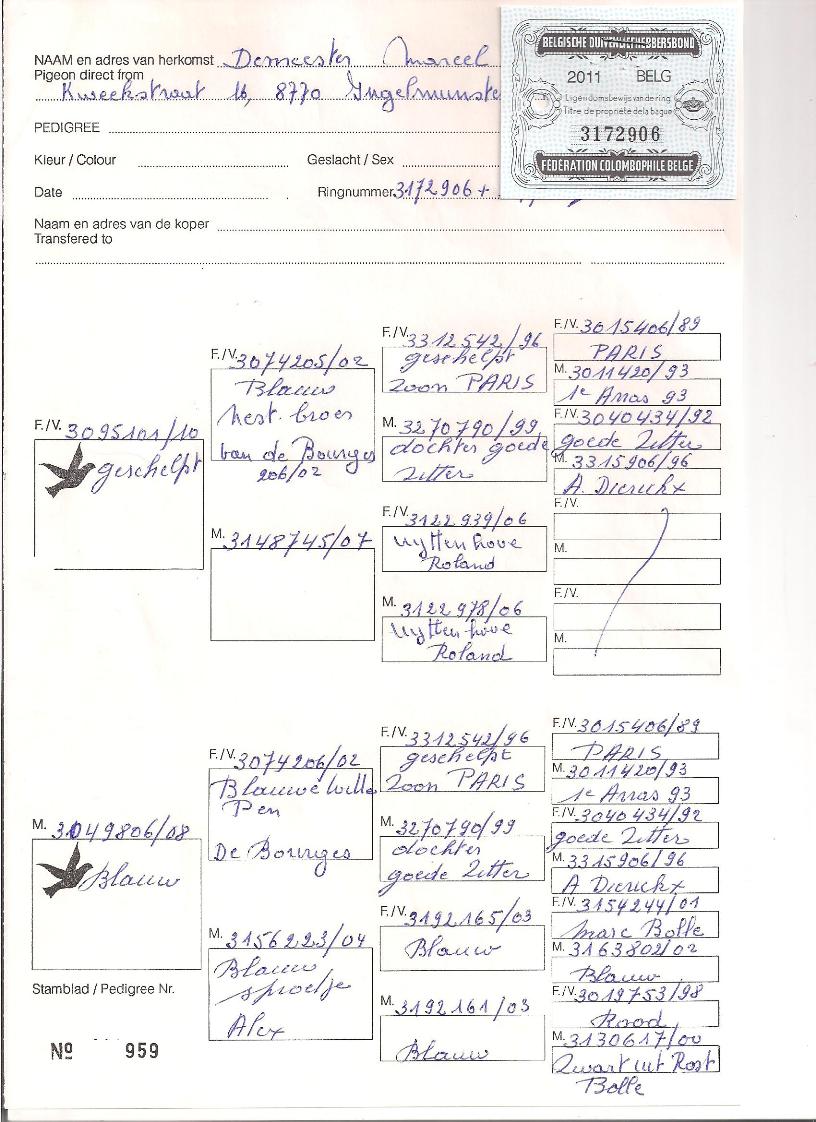 NAAM en adres van herkomst Demeester Marcel
Pigeon direct from
Kweekstraat 16, 8770 Ingelmunste
BELGISCHE DUIVENLIEFHEBBERSBOND
2011 BELG
Eigendomsbewijs van de ring
Titre de propriété de la bague
3172906
FÉDÉRATION COLOMBOPHILE BELGE
PEDIGREE
Kleur / Colour Geslacht / Sex
Date Ringnummer 3172906 +
Naam en adres van de koper
Transfered to
F./V. 3095101/10
geschelpt
F./V. 3074205/02
Blauw
nest. broer
van de Bourges
206/02
M. 3148745/07
F./V. 3312542/96
geschelpt
zoon PARIS
M. 3270790/99
dochter goede
zitter
F./V. 3122939/06
Uyttenhove
Roland
M. 3122978/06
Uyttenhove
Roland
F./V. 3015406/89
PARIS
M. 3011420/93
1e Arras 93
F./V. 3040434/92
goede Zitter
M. 3315906/96
A. Dierickx
F./V.
M.
F./V.
M.
M. 3049806/08
Blauw
F./V. 3074206/02
Blauwe Witte
Pen
De Bourges
M. 3156223/04
Blauw
sproetje
Alex
F./V. 3312542/96
geschelpt
zoon PARIS
M. 3270790/99
dochter
goede Zitter
F./V. 3192165/03
Blauw
M. 3192161/03
Blauw
F./V. 3015406/89
PARIS
M. 3011420/93
1e Arras 93
F./V. 3040434/92
goede Zitter
M. 3315906/96
A Dierickx
F./V. 3154244/01
Marc Bolle
M. 3163802/02
Blauw
F./V. 3019753/98
Rood
M. 3130617/00
Zwart uit Rost
Bolle
Stamblad / Pedigree Nr.
Nº 959